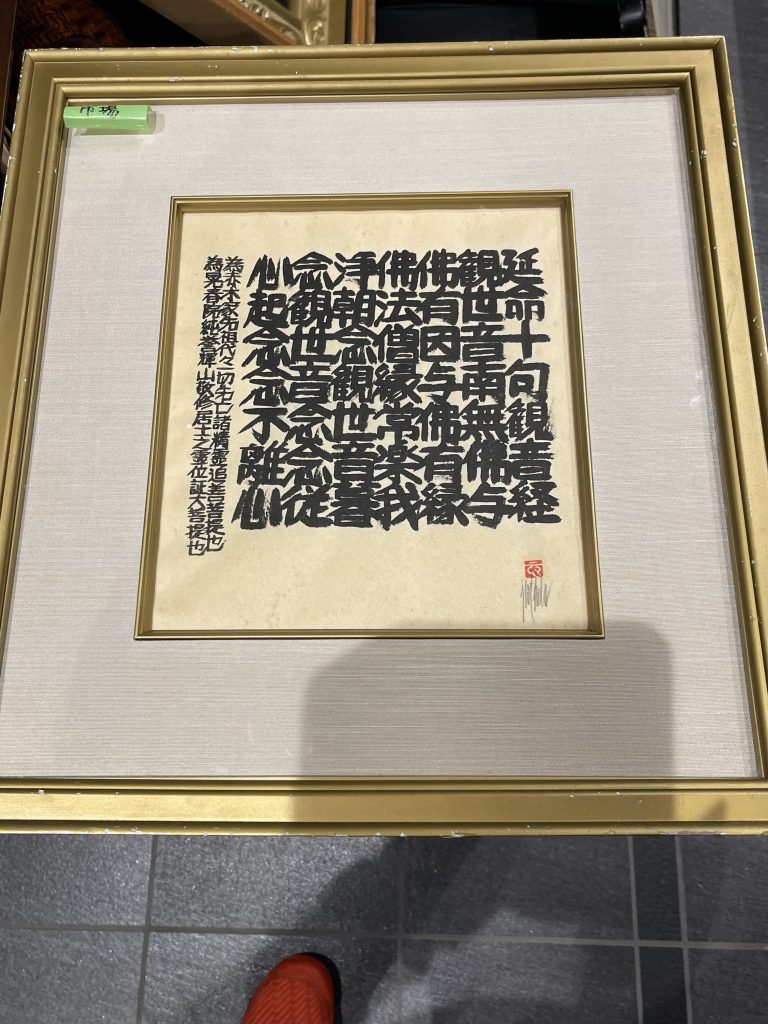 市場
延命十句観音経
観世音南無佛与
佛有因与佛有縁
佛法僧縁常楽我
浄朝念観世音暮
念観世音念念従
心起念念不離心
為木家先祖代々一切先亡諸精霊追善菩提也
為春院純山敬修居士之霊位証大菩提也